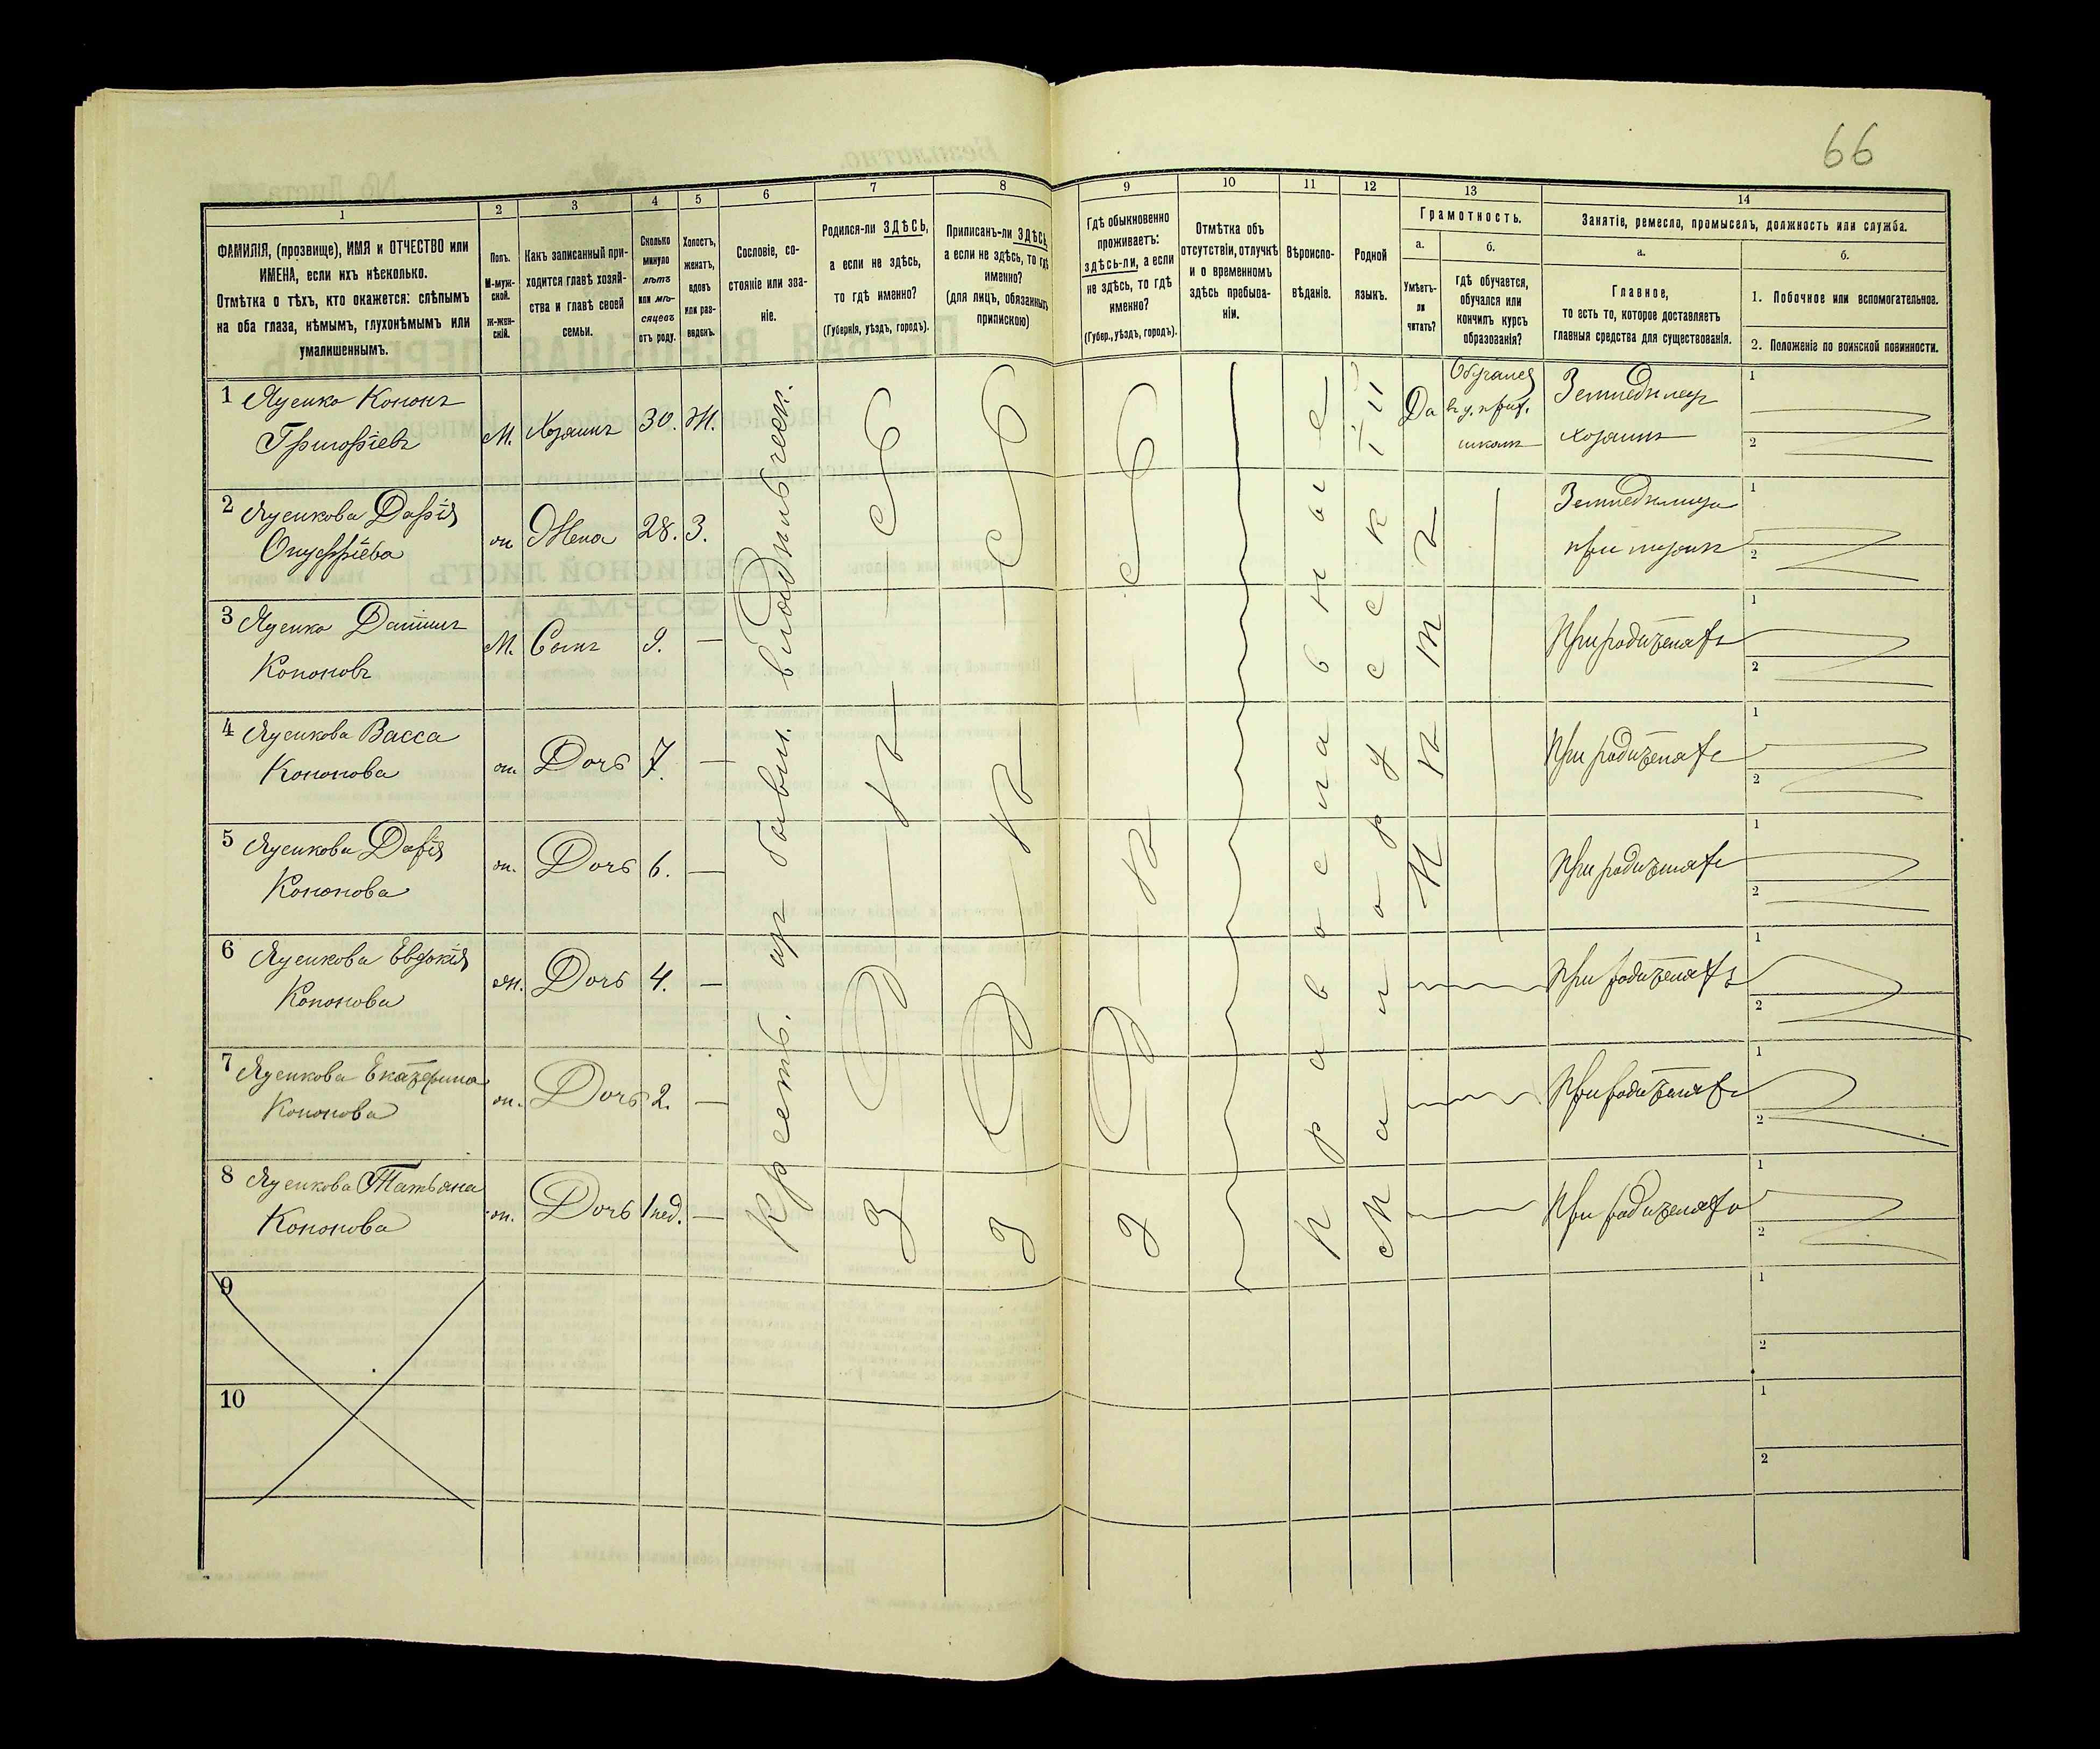 66
1
2
3
4
5
6
7
8
9
10
11
12
13
14
ФАМИЛІЯ, (прозвище), ИМЯ и ОТЧЕСТВО или
ИМЕНА, если ихъ нѣсколько.
Отмѣтка о тѣхъ, кто окажется: слѣпымъ
на оба глаза, нѣмымъ, глухонѣмымъ или
умалишеннымъ.
Полъ.
М-муж-
ской.
Ж-жен-
скій.
Какъ записанный при-
ходится главѣ хозяй-
ства и главѣ своей
семьи.
Сколько
минуло
лѣтъ
или мѣ-
сяцевъ
отъ роду.
Холостъ,
женатъ,
вдовъ
или раз-
веденъ.
Сословіе, со-
стояніе или зва-
ніе.
Родился-ли ЗДѢСЬ,
а если не здѣсь,
то гдѣ именно?
(Губернія, уѣздъ, городъ).
Приписанъ-ли ЗДѢСЬ,
а если не здѣсь, то гдѣ
именно?
(для лицъ, обязанныхъ
припискою)
Гдѣ обыкновенно
проживаетъ:
здѣсь-ли, а если
не здѣсь, то гдѣ
именно?
(Губер., уѣздъ, городъ).
Отмѣтка объ
отсутствіи, отлучкѣ
и о временномъ
здѣсь пребыва-
ніи.
Вѣроиспо-
вѣданіе.
Родной
языкъ.
Грамотность.
а.
Умѣетъ-
ли
читать?
б.
гдѣ обучается,
обучался или
кончилъ курсъ
образованія?
Занятіе, ремесло, промыселъ, должность или служба.
а.
Главное,
то есть то, которое доставляетъ
главныя средства для существованія.
б.
1. Побочное или вспомогательное.
2. Положеніе по воинской повинности.
1 Кононъ
Григорьевъ
М. Хозяинъ 30. Ж.
Да
Обучался
школѣ
Земледѣлецъ
хозяинъ
2 Дарія
Онуфріева
ж. Жена 28. З.
Земледѣлица
при мужѣ
3 Даніилъ
Кононовъ
М. Сынъ 9. —
При родителяхъ
4 Васса
Кононова
ж. Дочь 7. —
При родителяхъ
5 Дарія
Кононова
ж. Дочь 6. —
При родителяхъ
6 Евдокія
Кононова
ж. Дочь 4. —
При родителяхъ
7 Екатерина
Кононова
ж. Дочь 2. —
При родителяхъ
8 Татьяна
Кононова
ж. Дочь 1 нед. —
При родителяхъ
Крестъ. изъ бывш. владѣльческ.
Здѣсь
Здѣсь
Здѣсь
Православные
Малорусскій
Нѣтъ
9
10